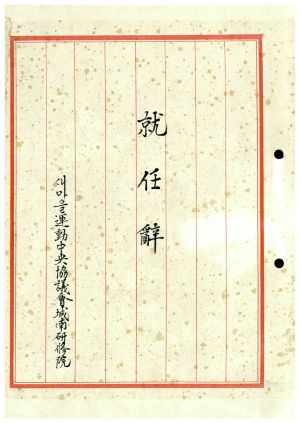 就任辭
새마을運動中央協議會城南硏修院